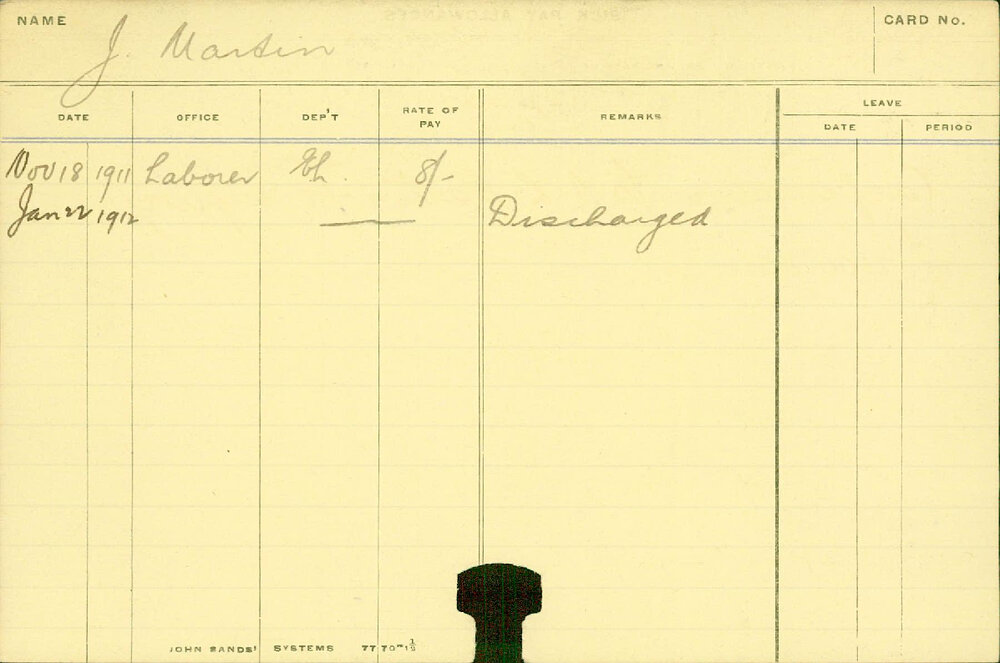 NAME J. Martin CARD No.
DATE OFFICE DEP'T RATE OF PAY REMARKS LEAVE
DATE PERIOD
Nov 18 1911 Laborer 8/-
Jan 22 1912 — Discharged
JOHN SANDS' SYSTEMS 77 70